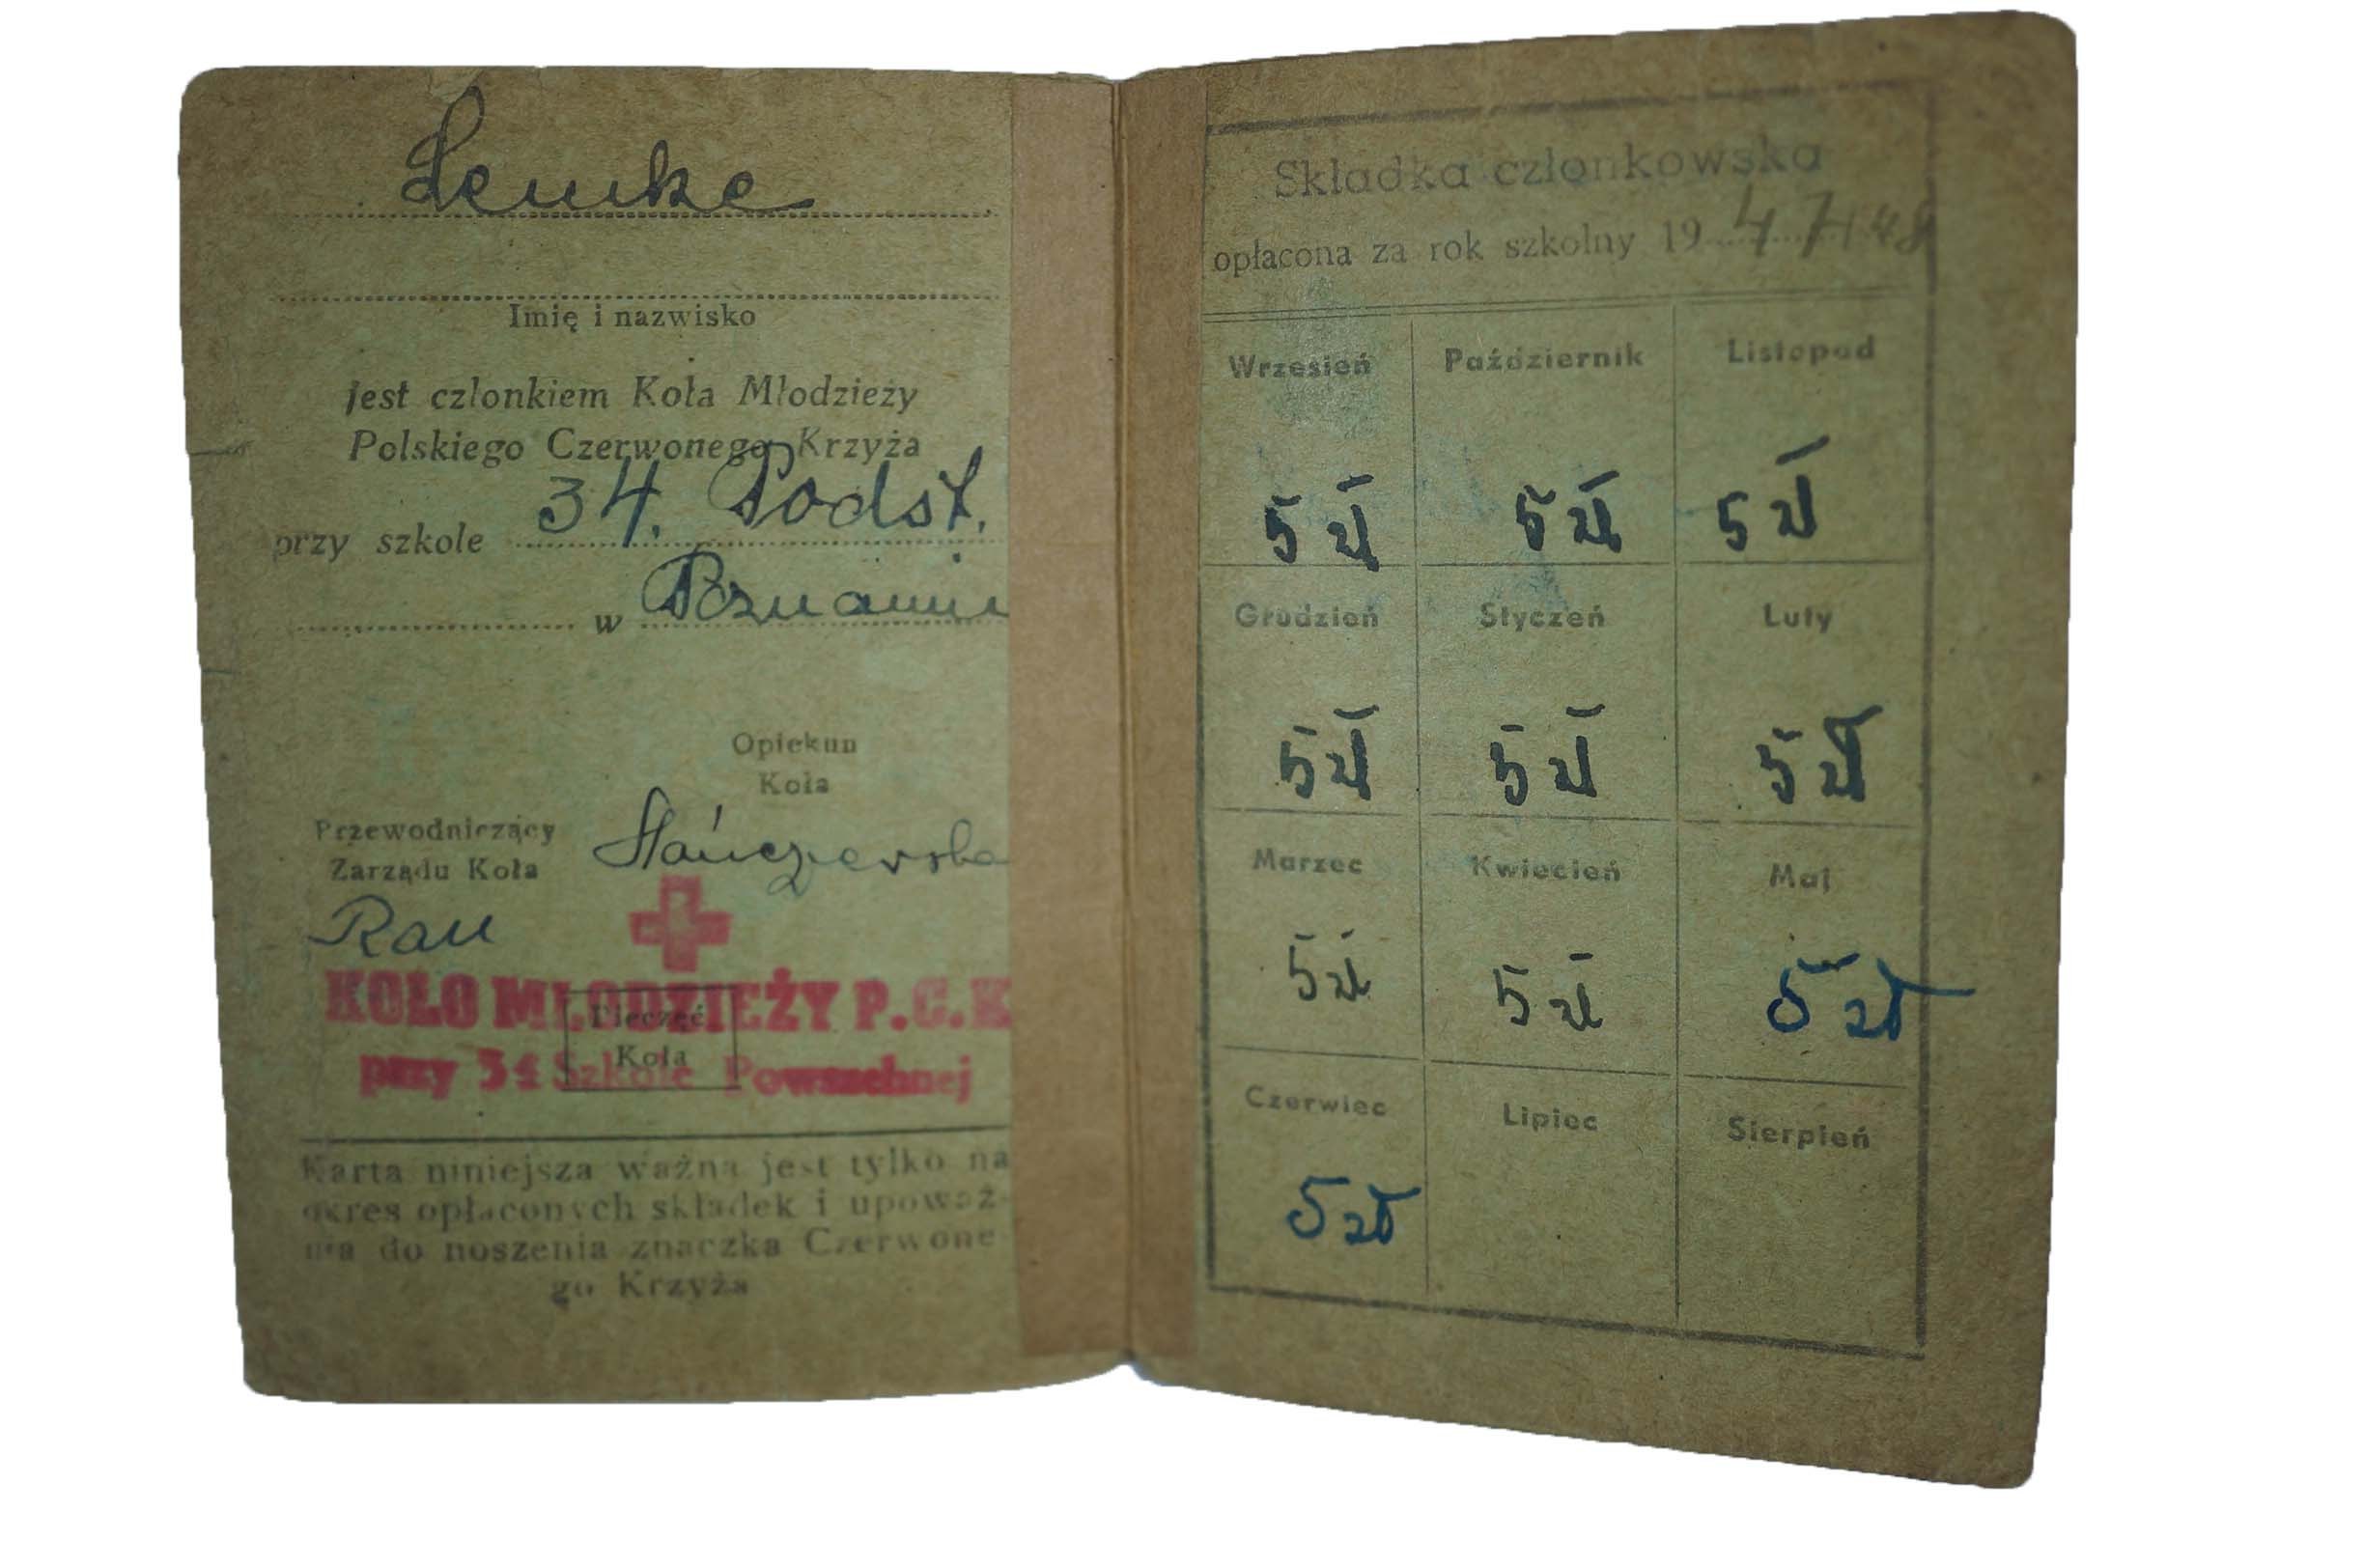 Lemke
Imię i nazwisko
jest członkiem Koła Młodzieży
Polskiego Czerwonego Krzyża
przy szkole 34. Podst.
w Poznaniu
Opiekun
Koła
Przewodniczący
Zarządu Koła
Rau
KOŁO MŁODZIEŻY P.C.K
Pieczęć
Koła
przy 34 Szkole Powszechnej
Karta niniejsza ważna jest tylko na
okres opłaconych składek i upoważ-
nia do noszenia znaczka Czerwone-
go Krzyża
Składka członkowska
opłacona za rok szkolny 19 47/48
Wrzesień Październik Listopad
5 zł 5 zł 5 zł
Grudzień Styczeń Luty
5 zł 5 zł 5 zł
Marzec Kwiecień Maj
5 zł 5 zł 5 zł
Czerwiec Lipiec Sierpień
5 zł